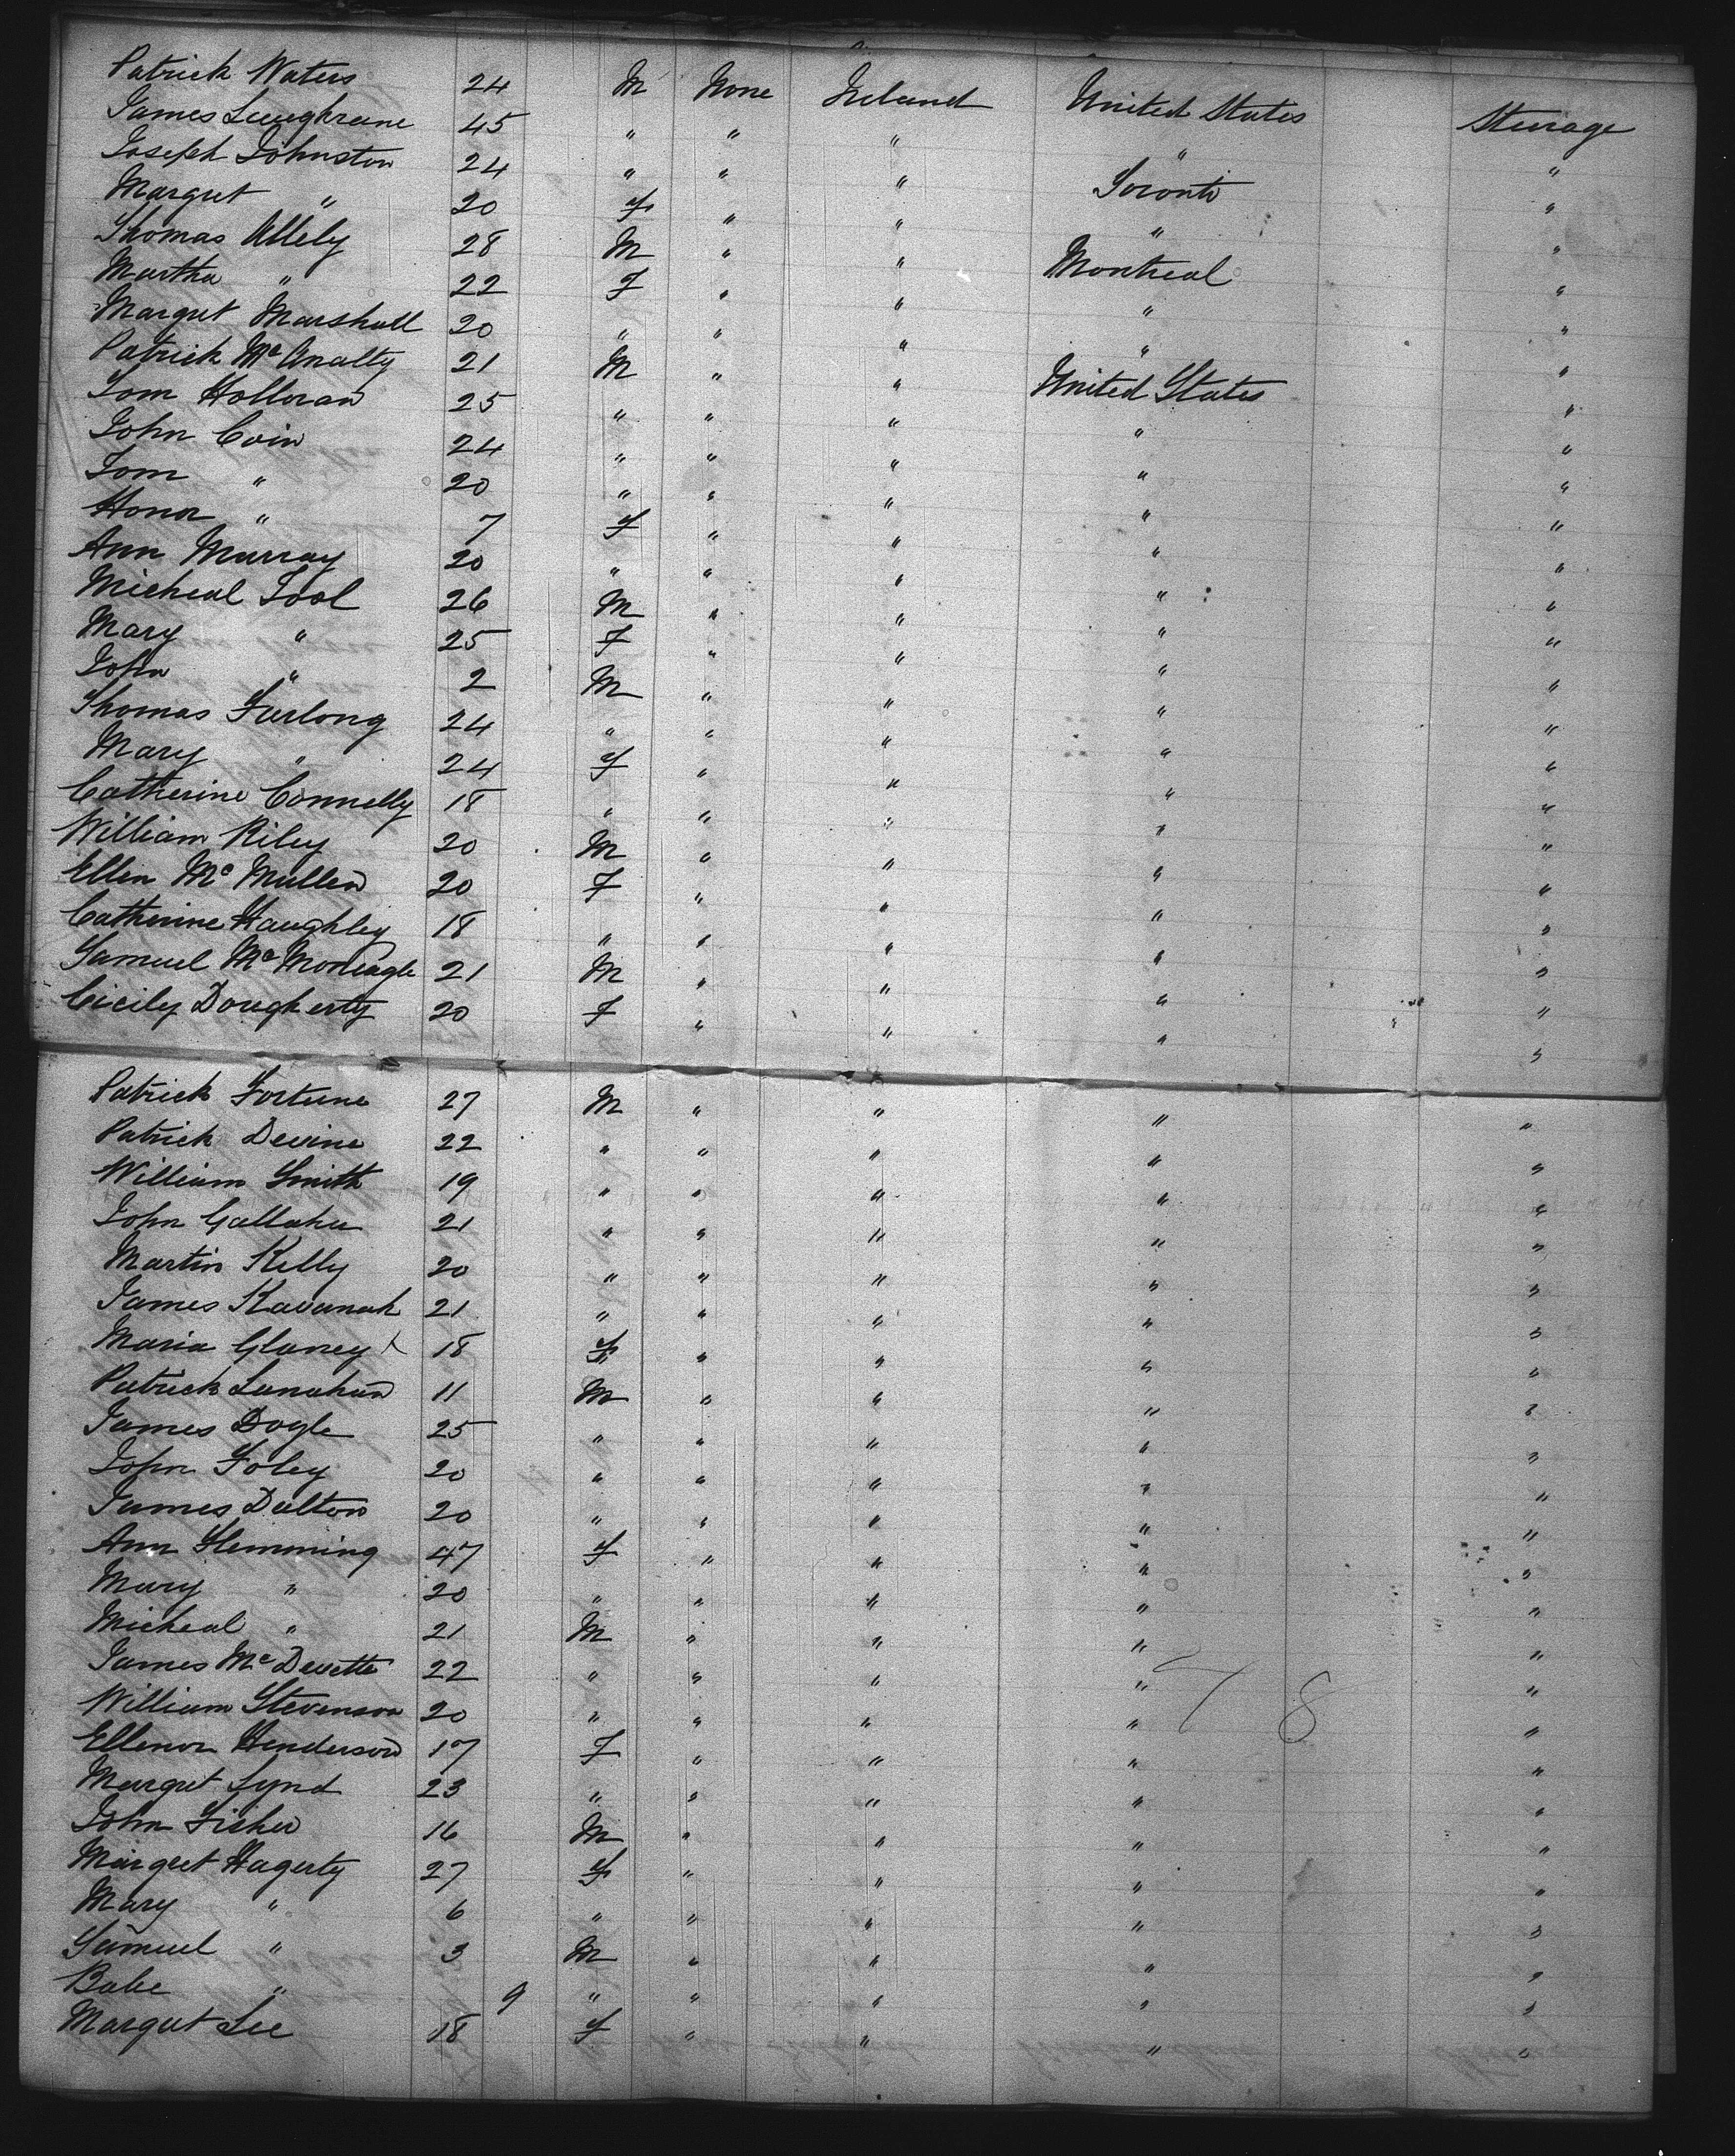 Patrick Waters 24 M None Ireland United States Steerage
James Laughrane 45 " " " " "
Joseph Johnston 24 " " " Toronto "
Margret " 20 F " " " "
Thomas Allely 28 M " " Montreal "
Martha " 22 F " " " "
Margret Marshall 20 " " " " "
Patrick Mc Analty 21 M " " United States "
Tom Holloran 25 " " " " "
John Coin 24 " " " " "
Tom " 20 " " " " "
Honor " 7 F " " " "
Ann Murray 20 " " " " "
Micheal Tool 26 M " " " "
Mary " 25 F " " " "
John " 2 M " " " "
Thomas Furlong 24 " " " " "
Mary " 24 F " " " "
Catherine Connelly 18 " " " " "
William Riley 20 M " " " "
Ellen Mc Mullen 20 F " " " "
Catherine Haughley 18 " " " " "
Samuel Mc Moneagle 21 M " " " "
Cicily Dougherty 20 F " " " "
Patrick Fortune 27 M " " " "
Patrick Devine 22 " " " " "
William Smith 19 " " " " "
John Gallaher 21 " " " " "
Martin Kelly 20 " " " " "
James Kavanah 21 " " " " "
Maria Glaney 18 F " " " "
Patrick Lanahan 11 M " " " "
James Dogle 25 " " " " "
John Foley 20 " " " " "
James Dalton 20 " " " " "
Ann Flemming 47 F " " " "
Mary " 20 " " " " "
Micheal " 21 M " " " "
James Mc Devette 22 " " " " "
William Stevenson 20 " " " " "
48
Ellenor Henderson 17 F " " " "
Margret Lynd 23 " " " " "
John Fisher 16 M " " " "
Margret Hagerty 27 F " " " "
Mary " 6 " " " " "
Samuel " 3 M " " " "
Babe " 9 " " " " "
Margret Lee 18 F " " " "